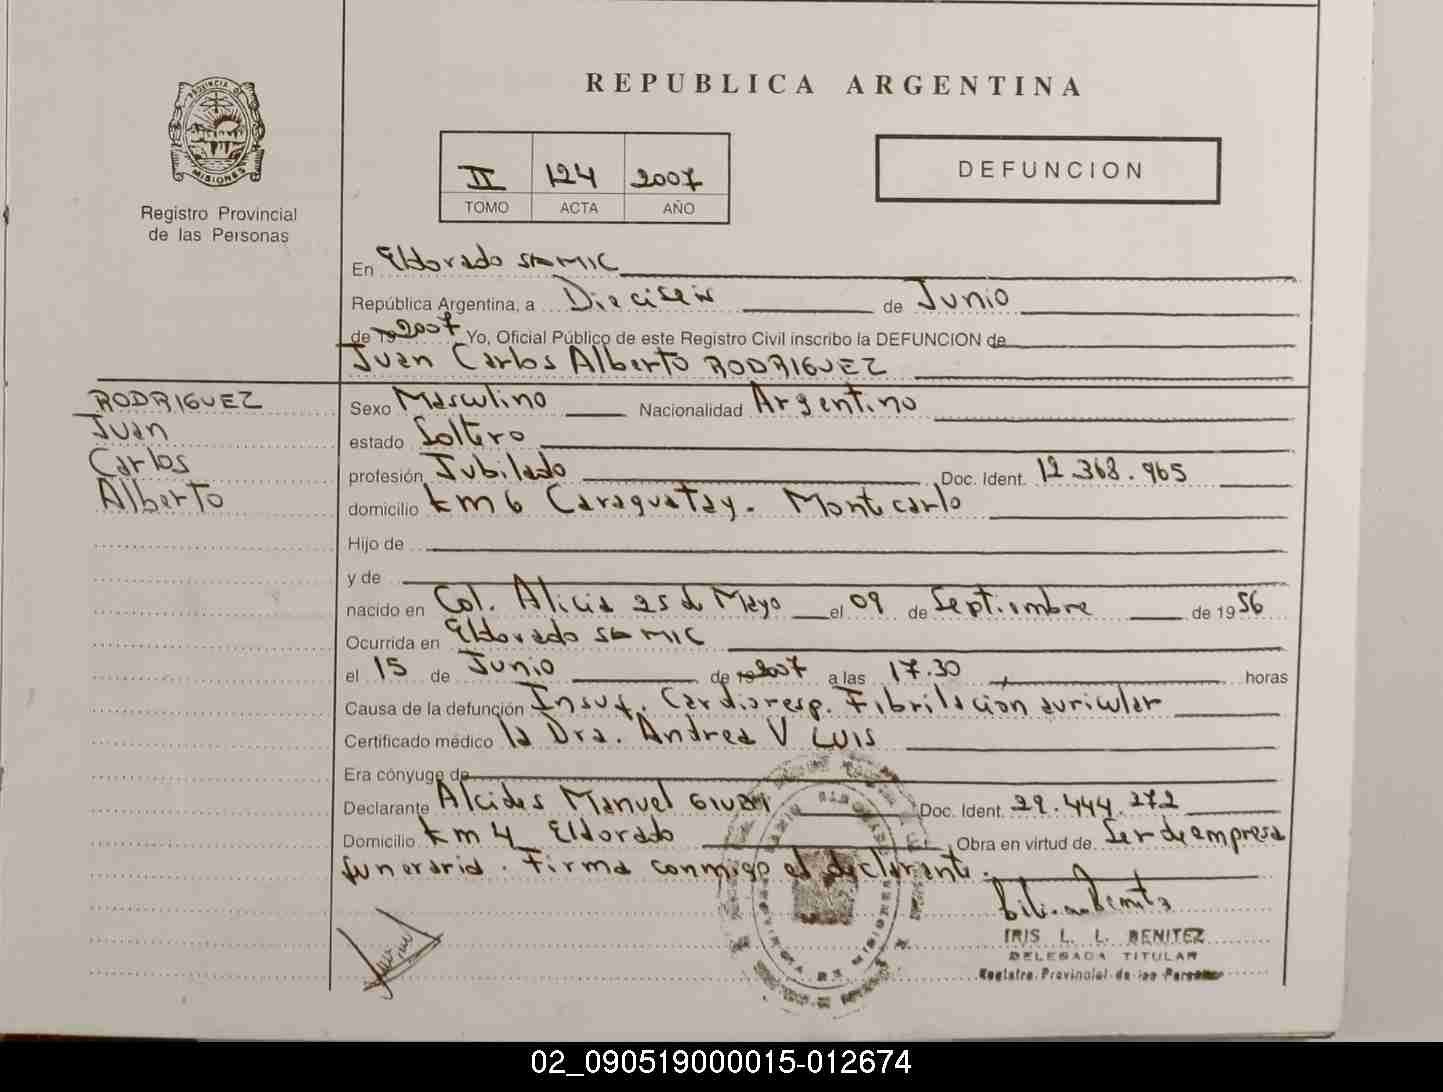 REPUBLICA ARGENTINA
PROVINCIA DE MISIONES
Registro Provincial
de las Personas
II 124 2007
TOMO ACTA AÑO
DEFUNCION
En Eldorado SAMIC
República Argentina, a Dieciseis de Junio
de 19 2007 Yo, Oficial Público de este Registro Civil inscribo la DEFUNCION de
Juan Carlos Alberto RODRIGUEZ
RODRIGUEZ
Juan
Carlos
Alberto
Sexo Masculino Nacionalidad Argentino
estado Soltero
profesión Jubilado Doc. Ident. 12.368.965
domicilio km 6 Caraguatay. Montecarlo
Hijo de
y de
nacido en Col. Alicia 25 de Mayo el 09 de Septiembre de 1956
Ocurrida en Eldorado SAMIC
el 15 de Junio de 2007 a las 17.30 horas
Causa de la defunción Insuf. Cardioresp. Fibrilacion auricular
Certificado médico la Dra. Andrea V LUIS
Era cónyuge de
Declarante Alcides Manuel Doc. Ident. 29.444.272
Domicilio km 4 Eldorado Obra en virtud de Ser de empresa
funeraria. Firma conmigo el declarante.
IRIS L. L. BENITEZ
DELEGADA TITULAR
Registro Provincial de las Personas
PROVINCIA DE MISIONES
02_090519000015-012674